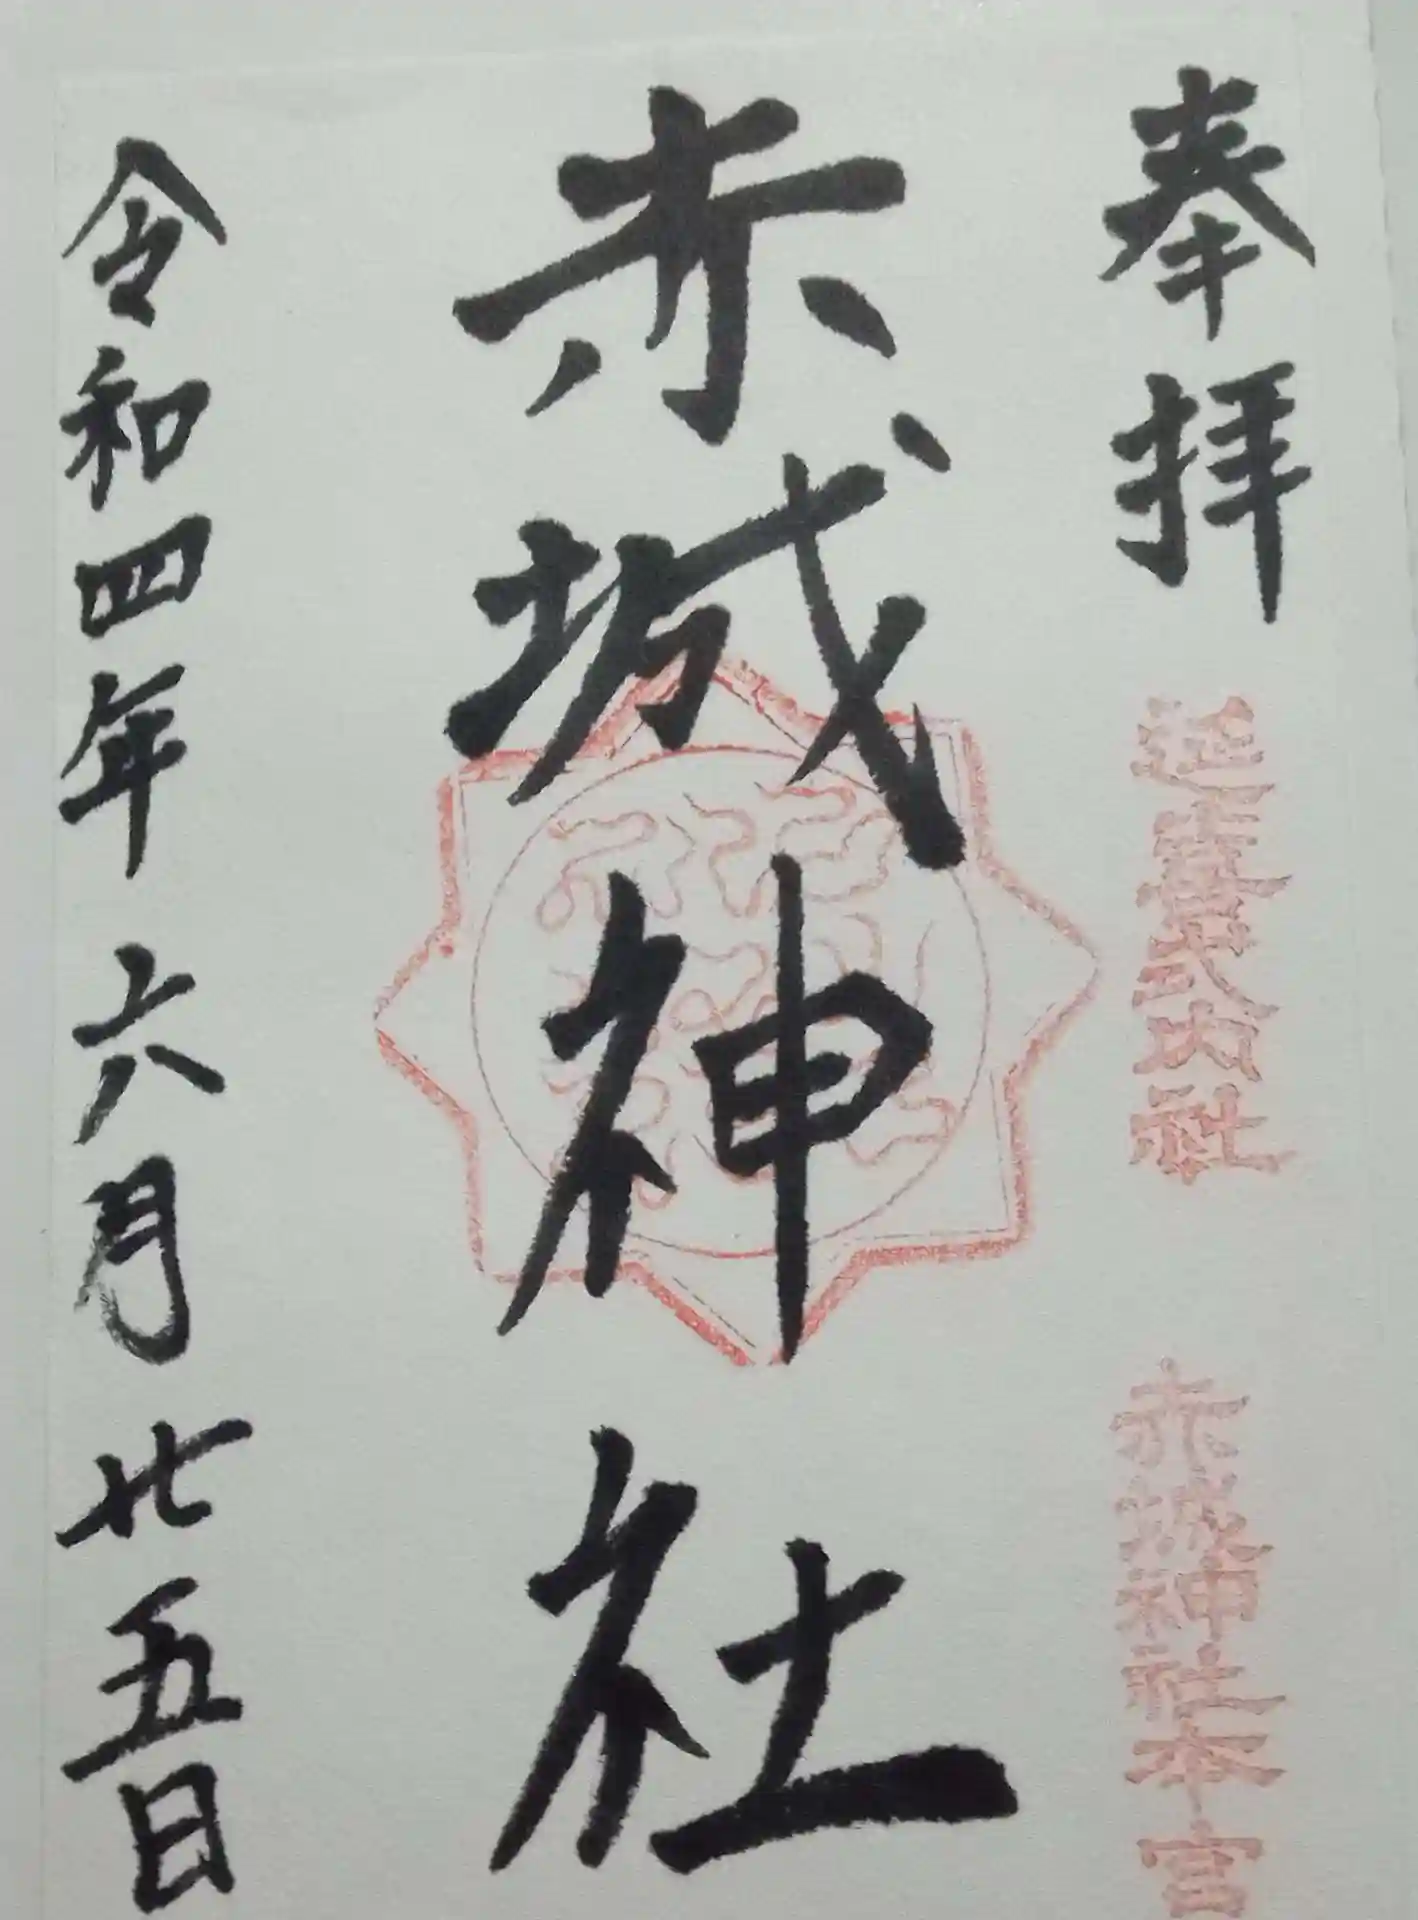 奉拝
延喜式内社
赤城神社本宮
赤城神社
令和四年六月廿五日